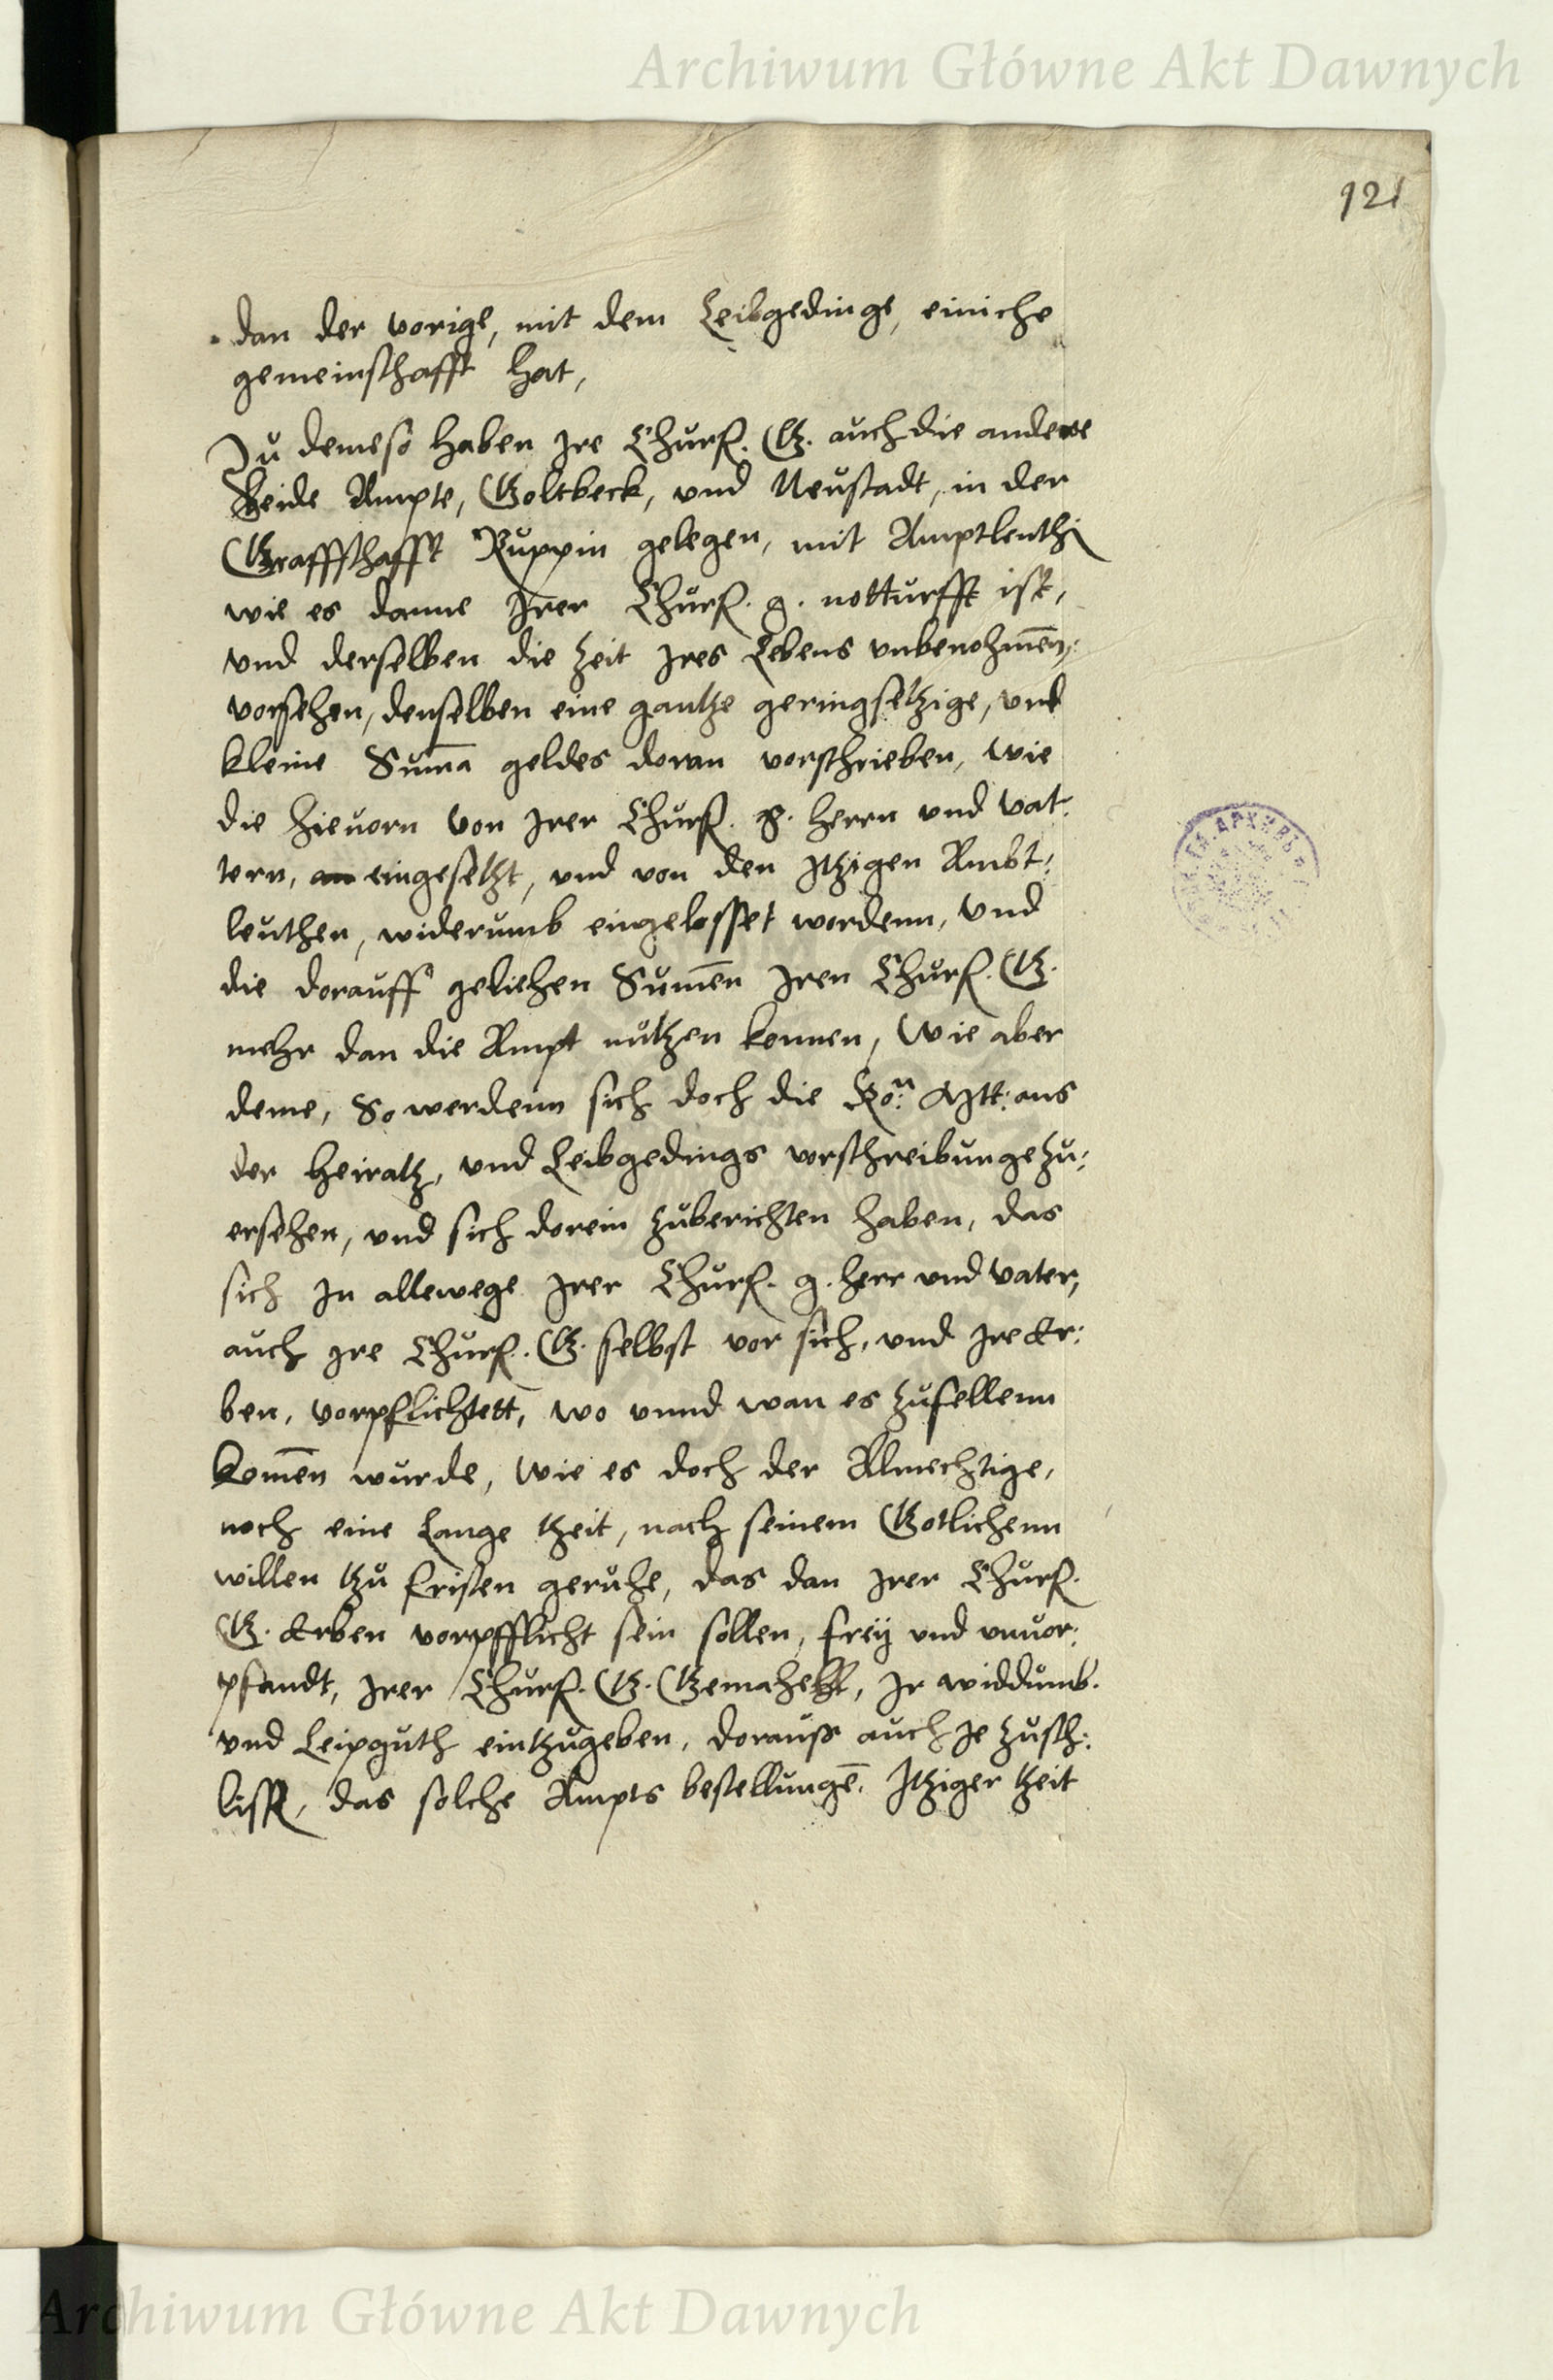 Archiwum Główne Akt Dawnych
121
dan der vorige, mit dem Leibgedinge, einiche
gemeinschafft hat,
Zu demeso haben Ire Churf. G. auch die andere
Beide Ampte, Goltbeck, und Neustadt, in der
Graffschafft Ruppin gelegen, mit Amptleuthn
wie es danne Irer Churf. g. notturfft ist,
vnd derselben die Zeit Ires Lebens vnbenohmen,
vorsehen, denselben eine gantze geringsetzige, vnd
kleine Suma geldes doran vorschrieben, wie
die hieuorn von Irer Churf. g. herrn vnd vat:
tern, eingesetzt, vnd von den Itzigen Ambt:
leuthen, widerumb eingelosset wordenn, Vnd
die dorauff geliehen Sumen Iren Churf. G.
mehr dan die Ampt nutzen konnen, Wie aber
deme, So werdenn sich doch die Kön: Mtt: aus
der heiratz, vnd Leibgedings vorschreibunge zu:
ersehen, vnd sich dorein zuberichten haben, das
sich In allewege Irer Churf. g. herr vnd Vater,
auch Ire Churf. G. selbst vor sich, vnd Ire Er:
ben, vorpflichtett, wo vnnd wan es zufellenn
komen wurde, Wie es doch der Almechtige,
noch eine Lange tzeit, nach seinem Gotlichenn
willen tzu fristen geruhe, das dan Irer Churf.
G. Erben vorpfflicht sein sollen, freÿ vnd vnuor:
pfandt, Irer Churf. G. Gemahell, Ir widdumb.
vnd Leipguth eintzugeben, dorauss auch Je zusch:
lissn, das solche Ampts bestellungē. Itziger tzeit
Archiwum Główne Akt Dawnych